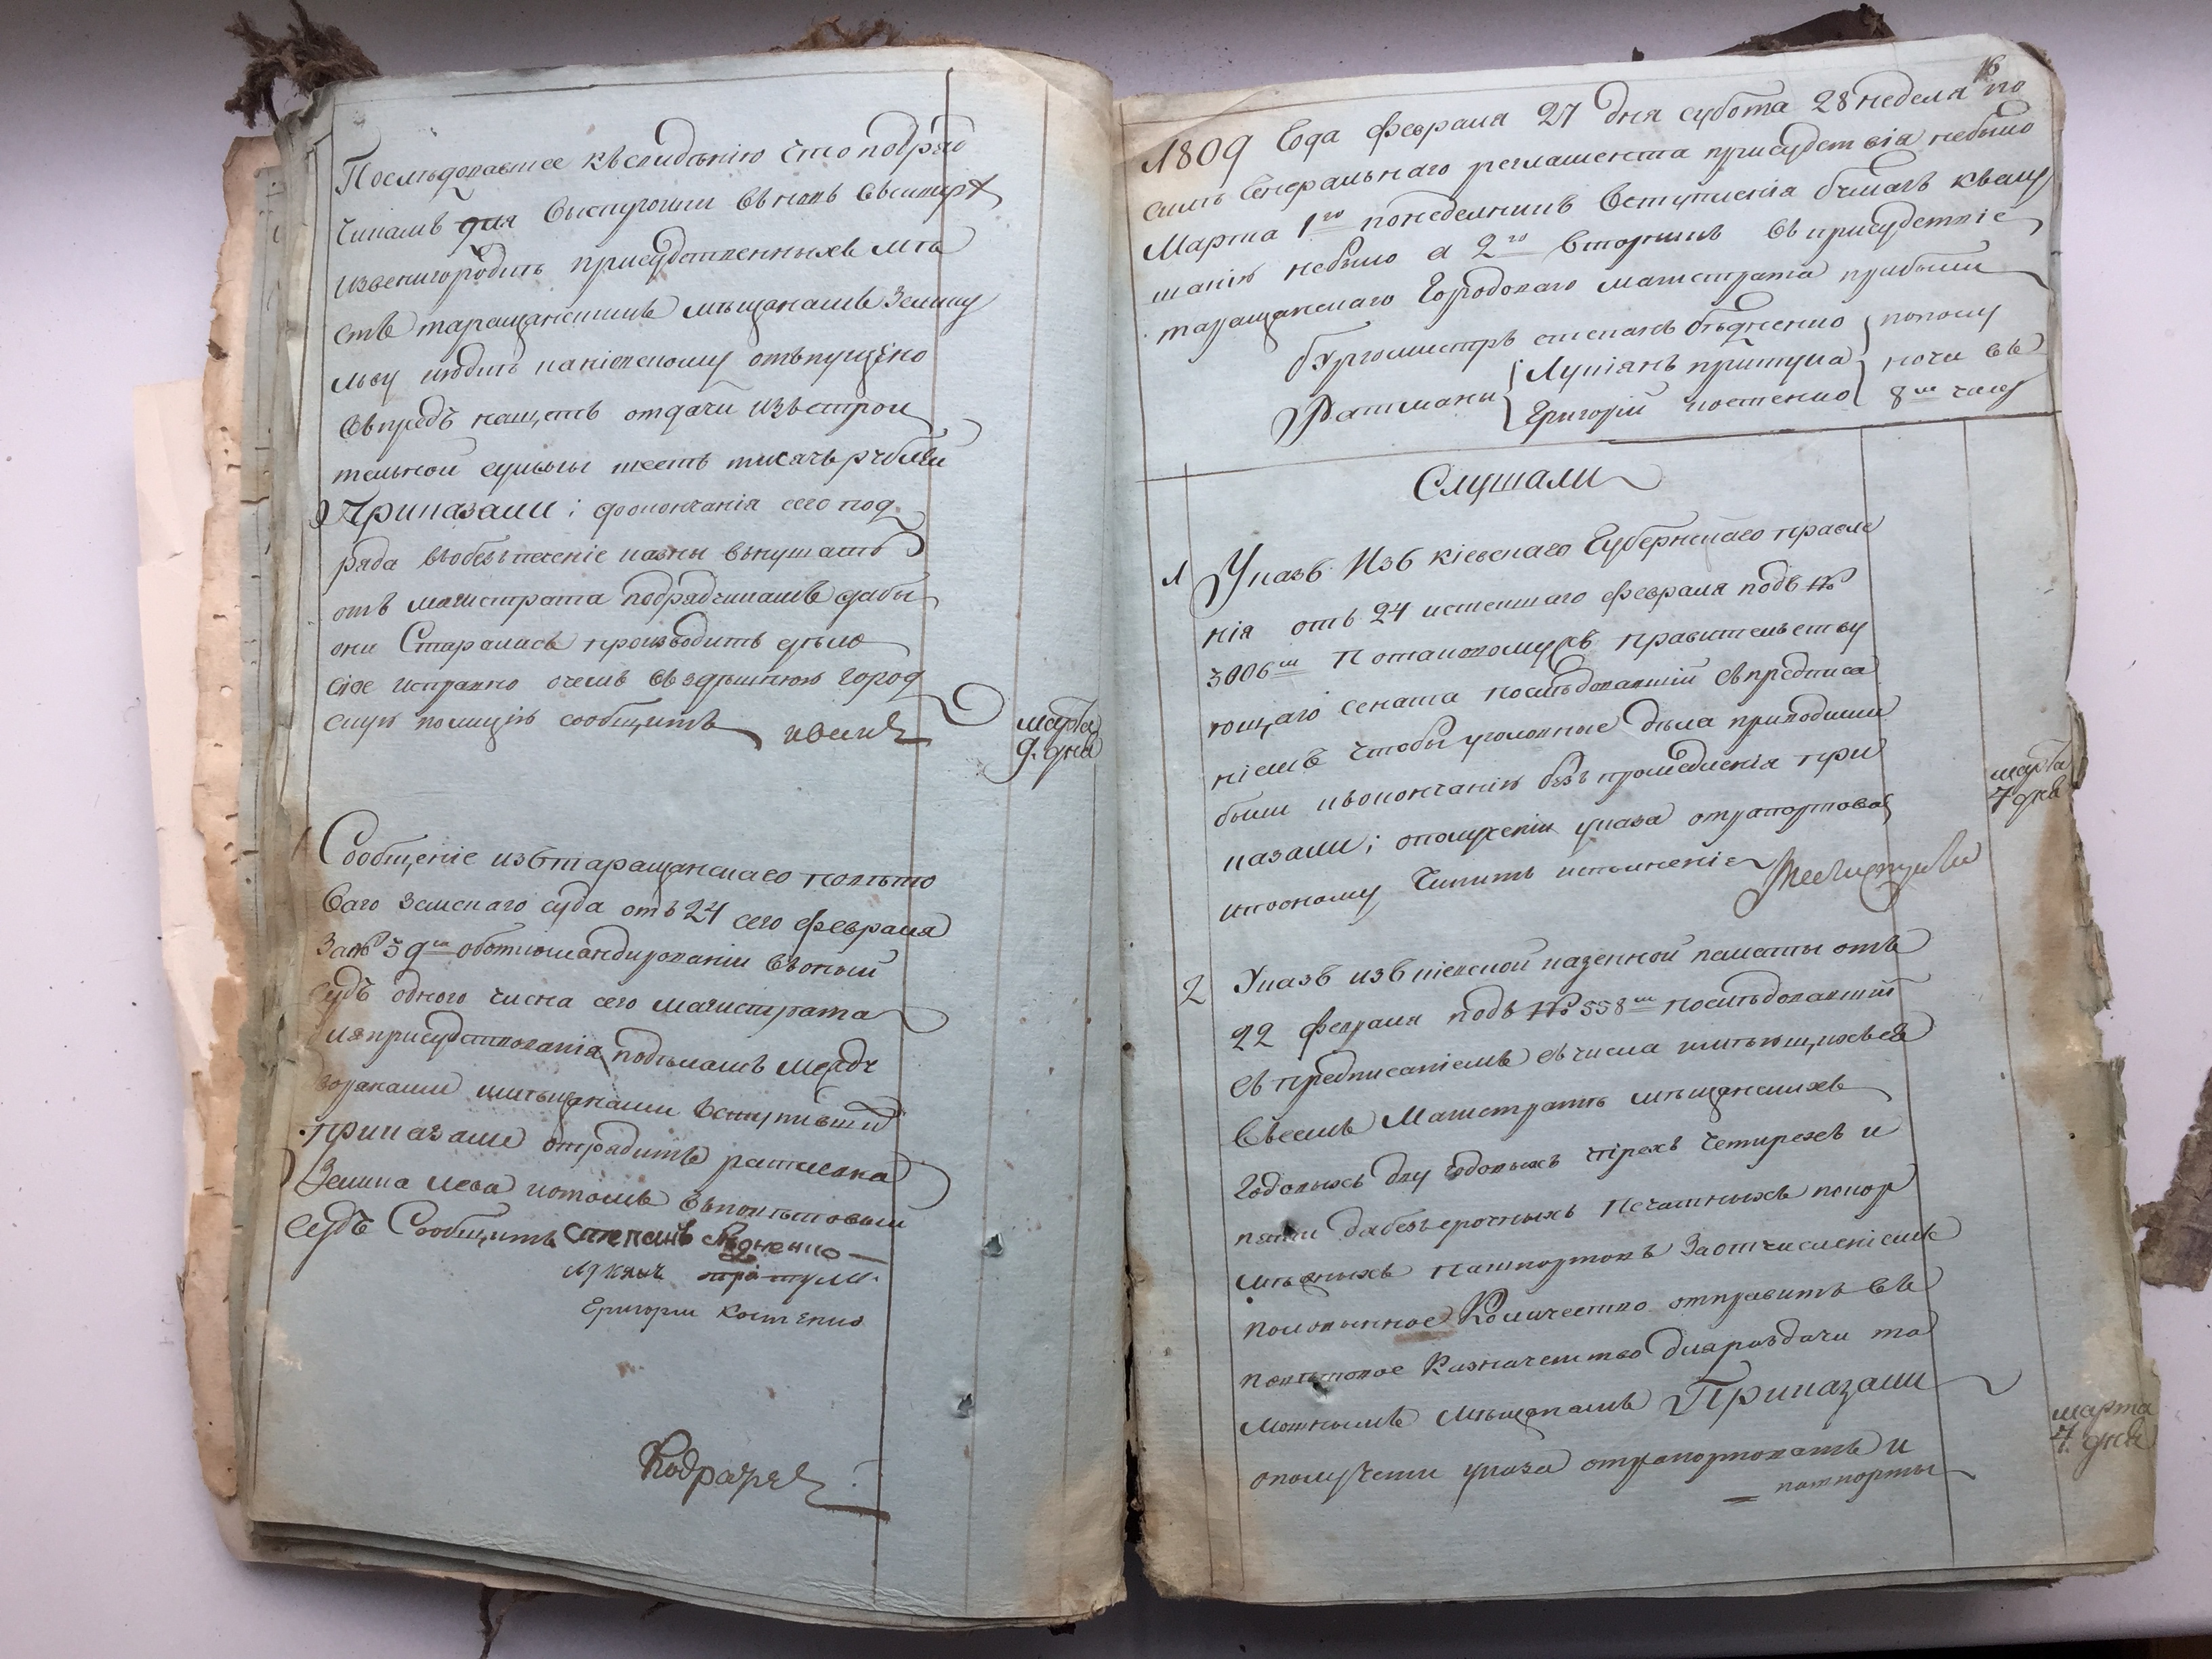 Последовавшее къ сведѣнию что подряд
чикамъ для
извенигородкѣ присудственныхъ мѣ
стъ таращанскимъ мѣщанамъ Зелику
отъпущено
въпредъ насчетъ отдачи изъ строи
тельной суммы шесть тисячъ рублей
Приказали; доокончанія сего под
ряда вобезъпеченіе казны внушать
отъ магистрата подрядчикамъ дабы
они старались производить дѣло
сіе исправно очемъ въ здѣшнюю город
скую полицію сообщить
марта
9. дня
Сообщеніе изъ таращанскаго повѣто
ваго земскаго суда отъ 24 сего февраля
за № 39 м объоткомандированіи въ оный
судъ одного члена сего магистрата
для присудствованія подѣламъ между
дворянами имѣщанами вступивший
приказали отрядить ратмана
судъ Сообщить Степанъ Бѣдненко
Лукянъ притула
Григории Костенко
16
1809 Года февраля 27 дня субота 28 неделя по
силѣ Генеральнаго регламента присудствія небыло
Марта 1 го понеделникъ вступленія бумагъ къ слу
шанію небыло а 2 го вторникъ въ присудствіе
таращанскаго Городоваго магистрата прибыли
бургомистръ степанъ бѣдненко
Ратманы Лукіянъ притула
Григорій костенко 8 м часу
Слушали
1 Указъ Изъ кіевскаго Губернскаго правле
нія отъ 24 истекшаго февраля подъ №
3006 м потаковомужъ правительству
ющаго сената последовавшій съ предписа
ніемъ чтобы уголовные дѣла приводими
были къокончанію безъ промедленія при
казали; ополученіи указа отрапортовать
ипооному чинить исполненіе
марта
7 дня
2 Указъ изъ кіевской казенной палаты отъ
22 февраля подъ № 558 м последовавший
съ предписаніемъ съ числа имѣющихъся
въ семъ Магистратѣ мѣщанскихъ
Годовыхъ двугодовыхъ трехъ четирехъ и
печатныхъ покор
мѣжныхъ пашпортовъ заотчисленіемъ
количество отправить въ
повѣтовое Казначейство дляраздачи та
мошнымъ мѣщанамъ Приказали
ополучении указа отрапортовать и
пашпорты
марта
7. дня